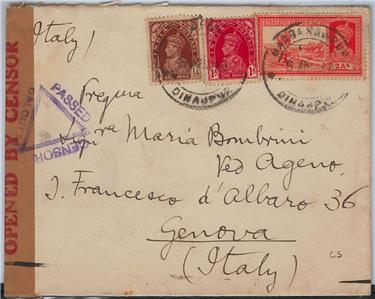 Italy/
OPENED BY CENSOR
PASSED
CENSOR
CALCUTTA
INDIA POSTAGE
2As
DINAJPUR
DINAJPUR
Pregma
Sigra Maria Bombrini
Ved Ageno
S. Francesco d'Albaro 36
Genova
(Italy)